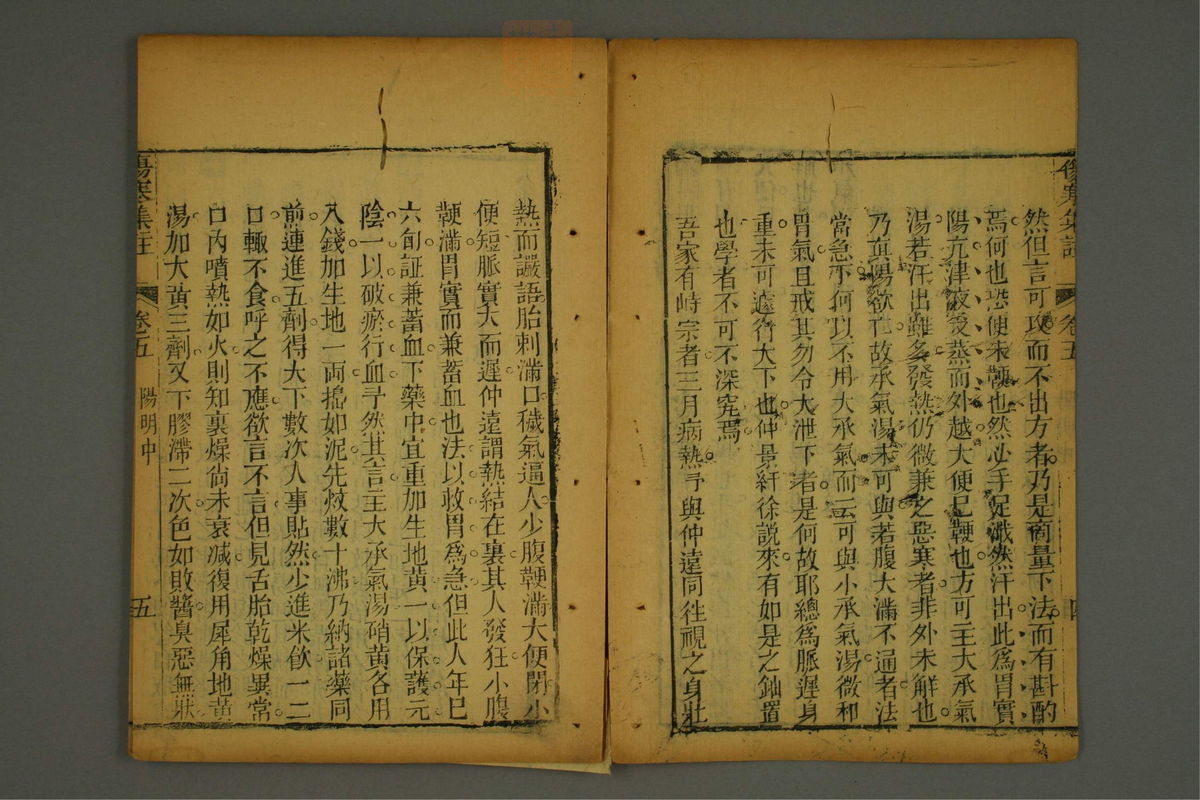 傷寒集註
卷五
然但言可攻而不出方者乃是商量下法而有斟酌
焉何也恐使未鞕也然必手足濈然汗出此爲胃實
陽亢津液受蒸而外越大便已鞕也方可主大承氣
湯若汗出雖多發熱仍微兼之惡寒者非外未解也
乃眞陽欲亡故承氣湯未可與若腹大滿不通者法
當急下何以不用大承氣而云可與小承氣湯微和
胃氣且戒其勿令大泄下者是何故耶總爲脈遲身
重未可遽行大下也仲景紆徐說來有如是之鈾置
也學者不可不深究焉
吾家有峙宗者三月病熱予與仲遠同徃視之身壯
熱而譫語胎刺滿口穢氣逼人少腹鞕滿大便閉小
便短脈實大而遲仲遠謂熱結在裏其人發狂小腹
鞕滿胃實而兼蓄血也法以收胃爲急但此人年巳
六旬証兼蓄血下藥中宜重加生地黃一以保護元
陰一以破瘀行血予然其言主大承氣湯硝黃各用
八錢加生地一兩搗如泥先炆數十沸乃納諸藥同
煎連進五劑得大下數次人事貼然少進米飲一二
口輙不食呼之不應欲言不言但見舌胎乾燥異常
口內噴熱如火則知裏燥尙未衰減復用犀角地黃
湯加大黃三劑又下膠滯二次色如敗醬臭惡無狀
傷寒集註
卷五
陽明中
五